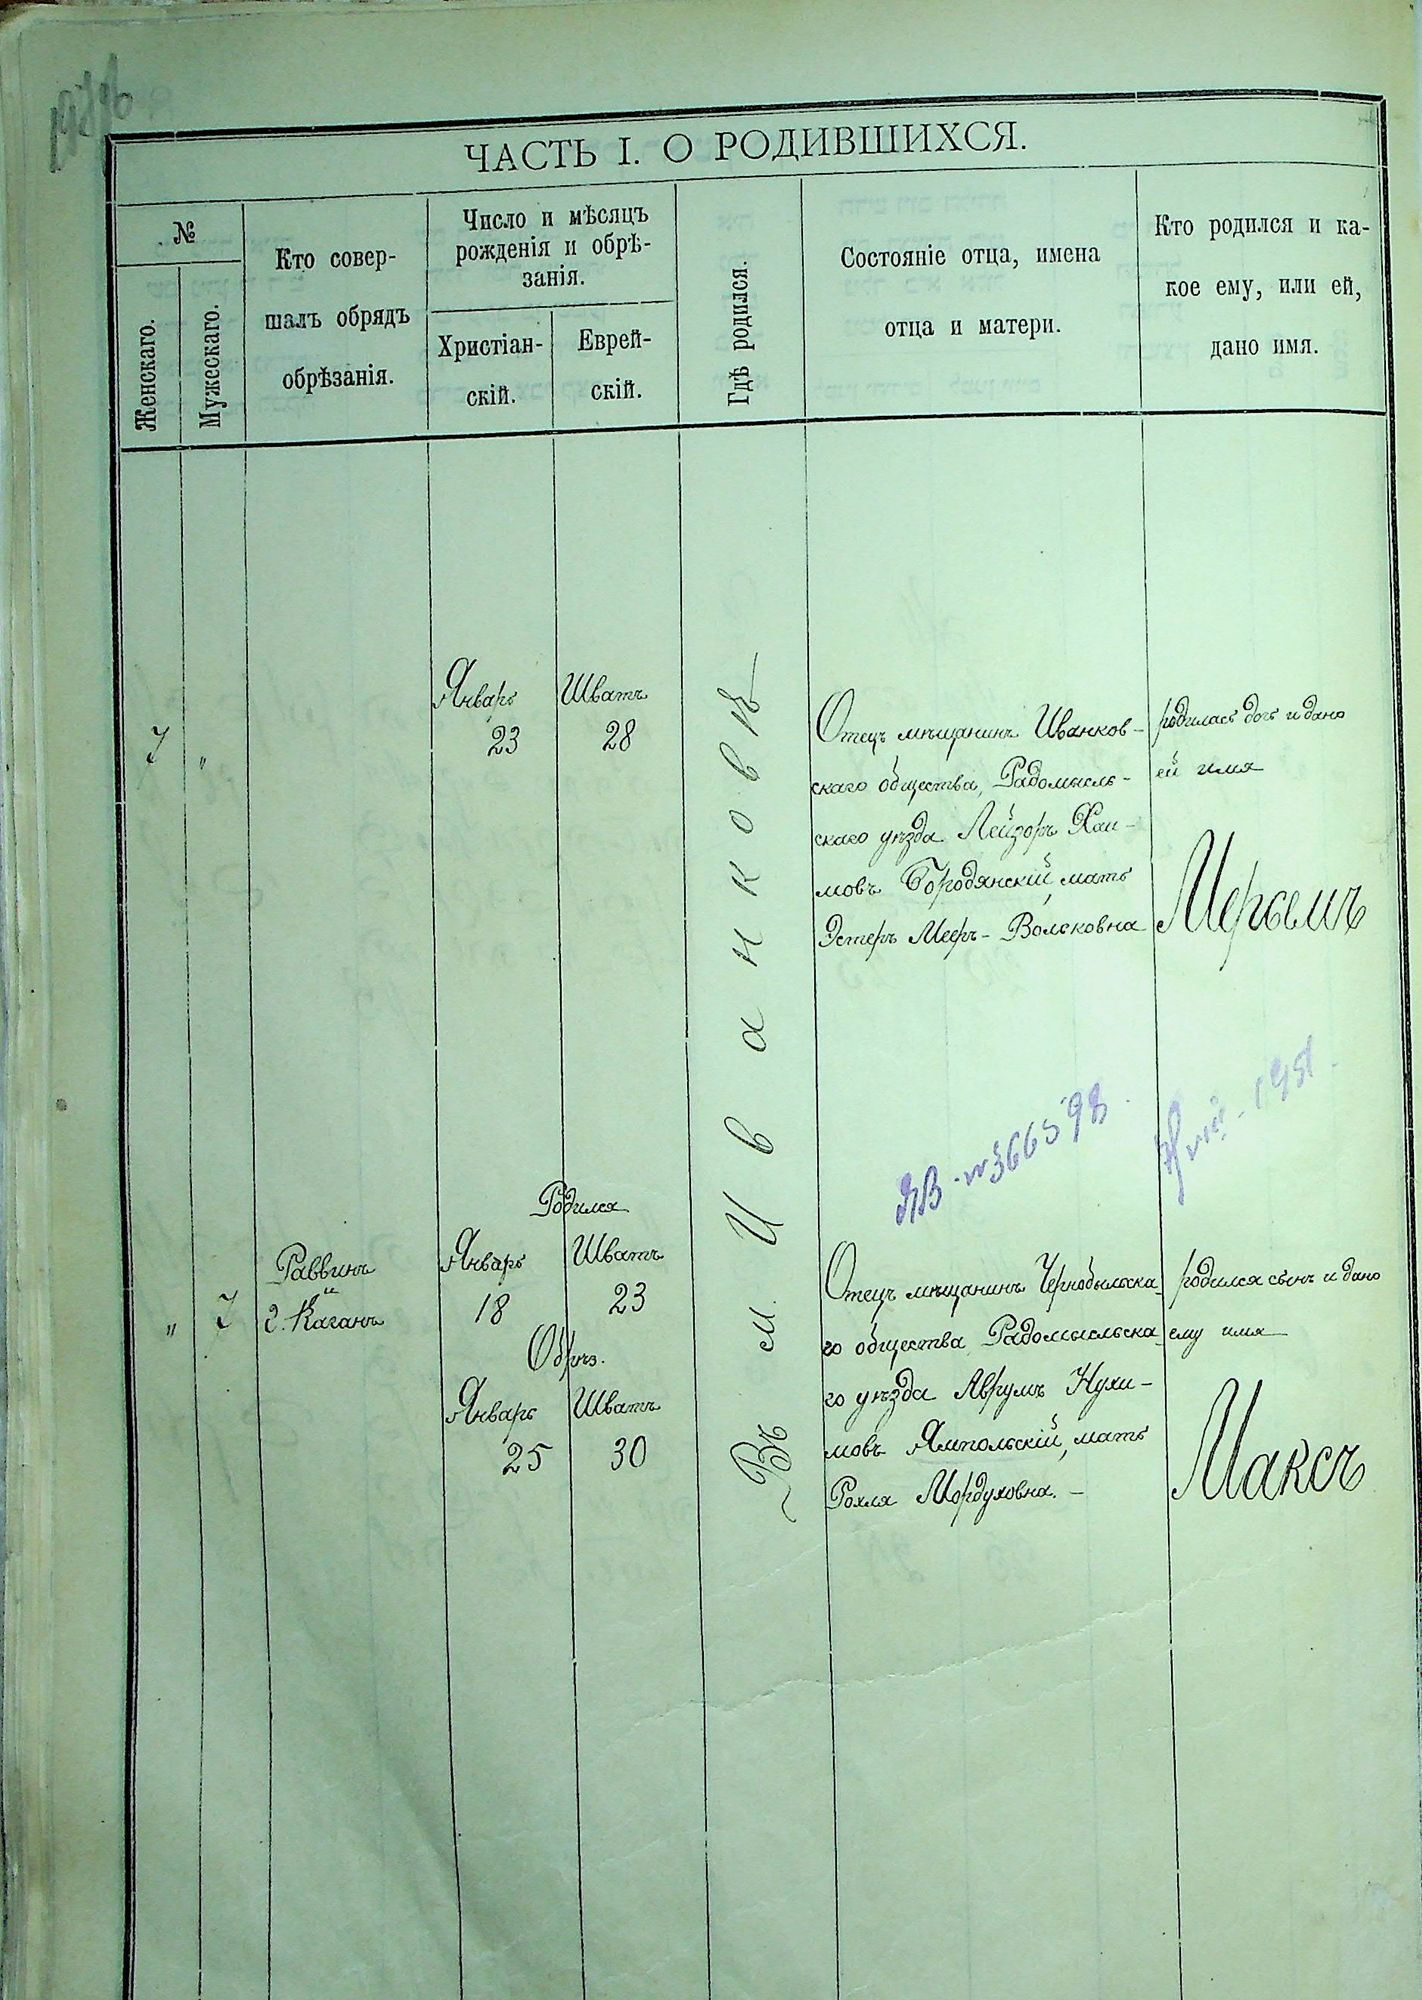 ЧАСТЬ I. О РОДИВШИХСЯ.
№
Женскаго.
Мужескаго.
Кто совер-
шалъ обрядъ
обрѣзанія.
Число и мѣсяцъ
рожденія и обрѣ-
занія.
Христіан-
скій.
Еврей-
скій.
Гдѣ родился.
Состояніе отца, имена
отца и матери.
Кто родился и ка-
кое ему, или ей,
дано имя.
Въ м. Иванковѣ
7 "
Январь Шватъ
23 28
Отецъ мѣщанинъ Иванков-
скаго общества, Радомысль-
скаго уѣзда Лейзоръ Хаи-
мовъ Бородянскій, мать
Эстеръ Меръ- Вольковна
родилась дочь и дано
ей имя
Мерьемъ
" 7
Раввинъ
Каганъ
Родился
Январь Шватъ
18 23
Обрѣз.
Январь Шватъ
25 30
Отецъ мѣщанинъ Чернобыльска
го общества Радомысльска
го уѣзда Аврумъ Нухи-
мовъ Ямпольскій, мать
Рохля Мордуховна. -
родился сынъ и дано
ему имя
Максъ